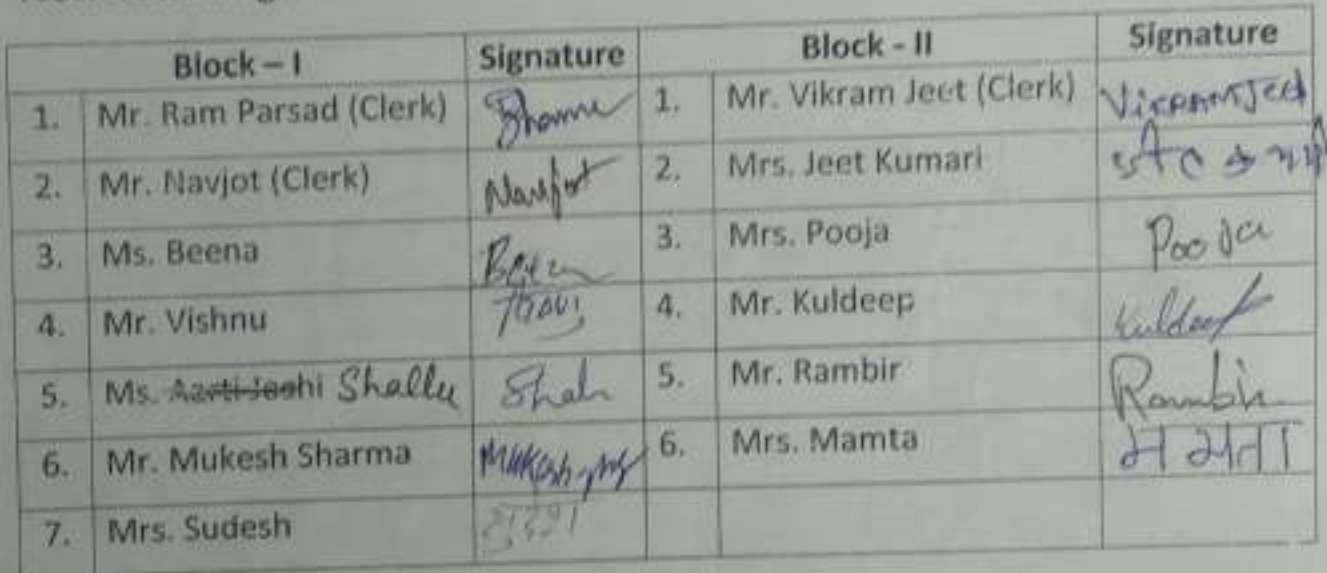 Block – I Signature Block - II Signature
1. Mr. Ram Parsad (Clerk) 1. Mr. Vikram Jeet (Clerk) VikramJeet
2. Mr. Navjot (Clerk) Navjot 2. Mrs. Jeet Kumari
3. Ms. Beena 3. Mrs. Pooja Pooja
4. Mr. Vishnu 4. Mr. Kuldeep Kuldeep
5. Ms. Aarti Joshi Shallu 5. Mr. Rambir Rambir
6. Mr. Mukesh Sharma Mukesh 6. Mrs. Mamta ममता
7. Mrs. Sudesh